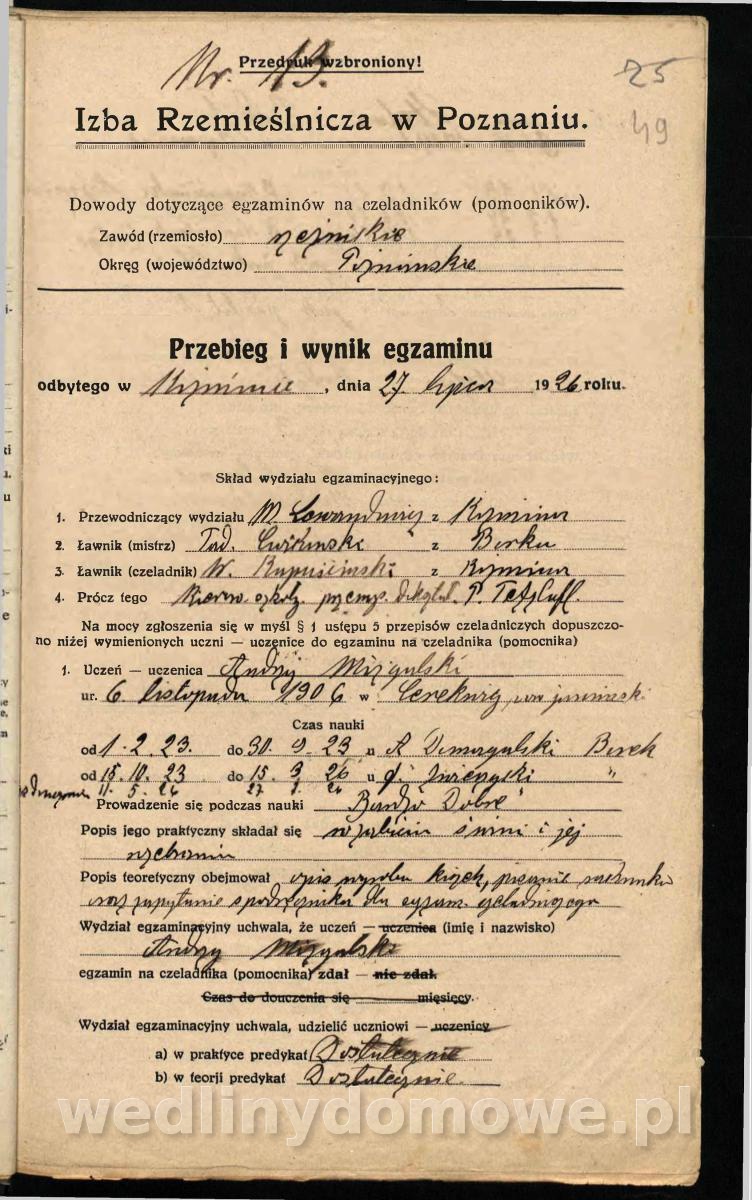 Przedruk wzbroniony!
Nr. 13.
25
49
Izba Rzemieślnicza w Poznaniu.
Dowody dotyczące egzaminów na czeladników (pomocników).
Zawód (rzemiosło) rzeźnickie
Okręg (województwo) Poznańskie
Przebieg i wynik egzaminu
odbytego w Koźminie, dnia 27. lipca 1926 roku.
Skład wydziału egzaminacyjnego:
1. Przewodniczący wydziału M. z Koźmina
2. Ławnik (mistrz) Tad. z Borku
3. Ławnik (czeladnik) W. Kapuściński z Koźmina
4. Prócz tego
Na mocy zgłoszenia się w myśl § 1 ustępu 5 przepisów czeladniczych dopuszczo-
no niżej wymienionych uczni — uczenice do egzaminu na czeladnika (pomocnika)
1. Uczeń — uczenica Andrzy Mizgalski
ur. 6. listopada 1906 w Cerekwicy,
Czas nauki
od 1. 2. 23. do 30. 9. 23 u A Borek
od 15. 10. 23 do 15. 3. 26 u "
11. 5. 26 27
Prowadzenie się podczas nauki "Bardzo Dobre"
Popis jego praktyczny składał się w zabiciu świni i jej
rozebraniu
Popis teoretyczny obejmował opis wyrobu kiszek, pisanie rachunku
oraz zapytanie z podręcznika dla egzam. czeladniczego
Wydział egzaminacyjny uchwala, że uczeń — uczenica (imię i nazwisko)
Andrzy Mizgalski
egzamin na czeladnika (pomocnika) zdał — nie zdał.
Czas do douczenia się miesięcy.
Wydział egzaminacyjny uchwala, udzielić uczniowi — uczenicy
a) w praktyce predykat Dostatecznie
b) w teorji predykat Dostatecznie.
wedlinydomowe.pl